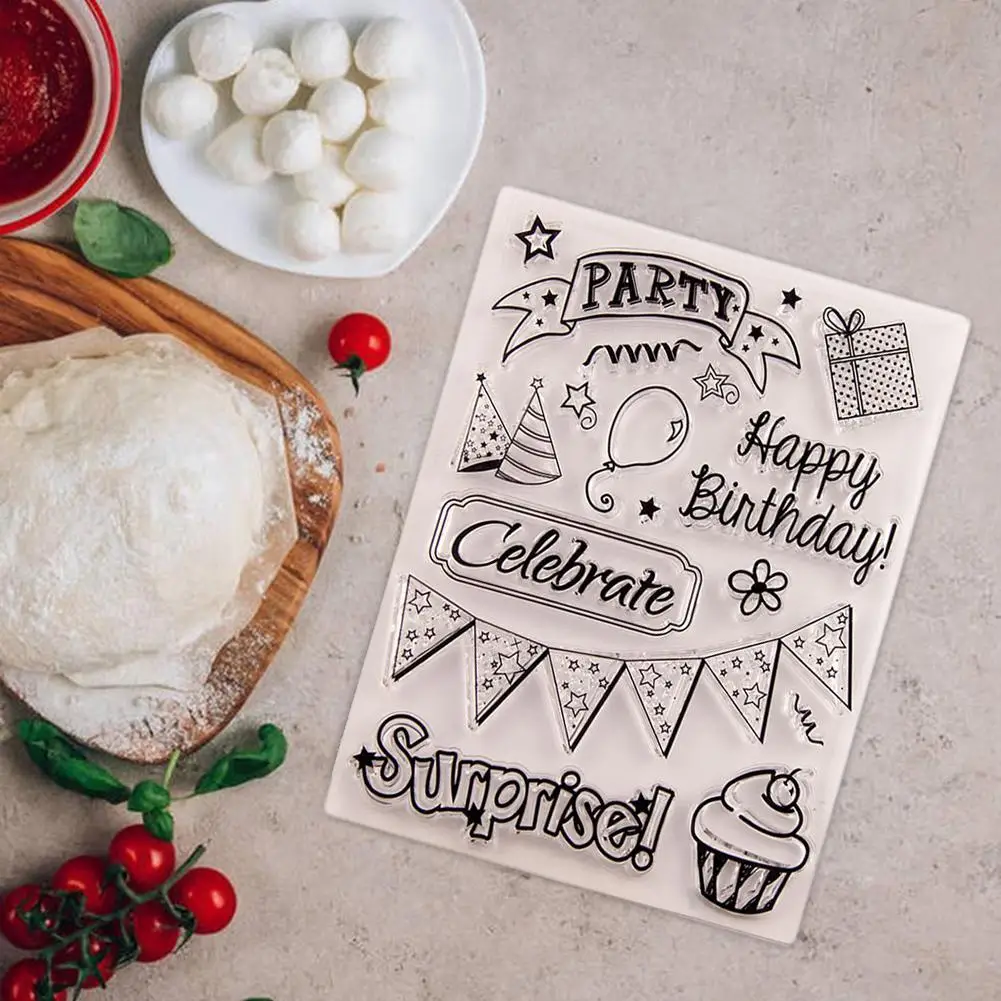 PARTY
Happy
Birthday!
Celebrate
Surprise!